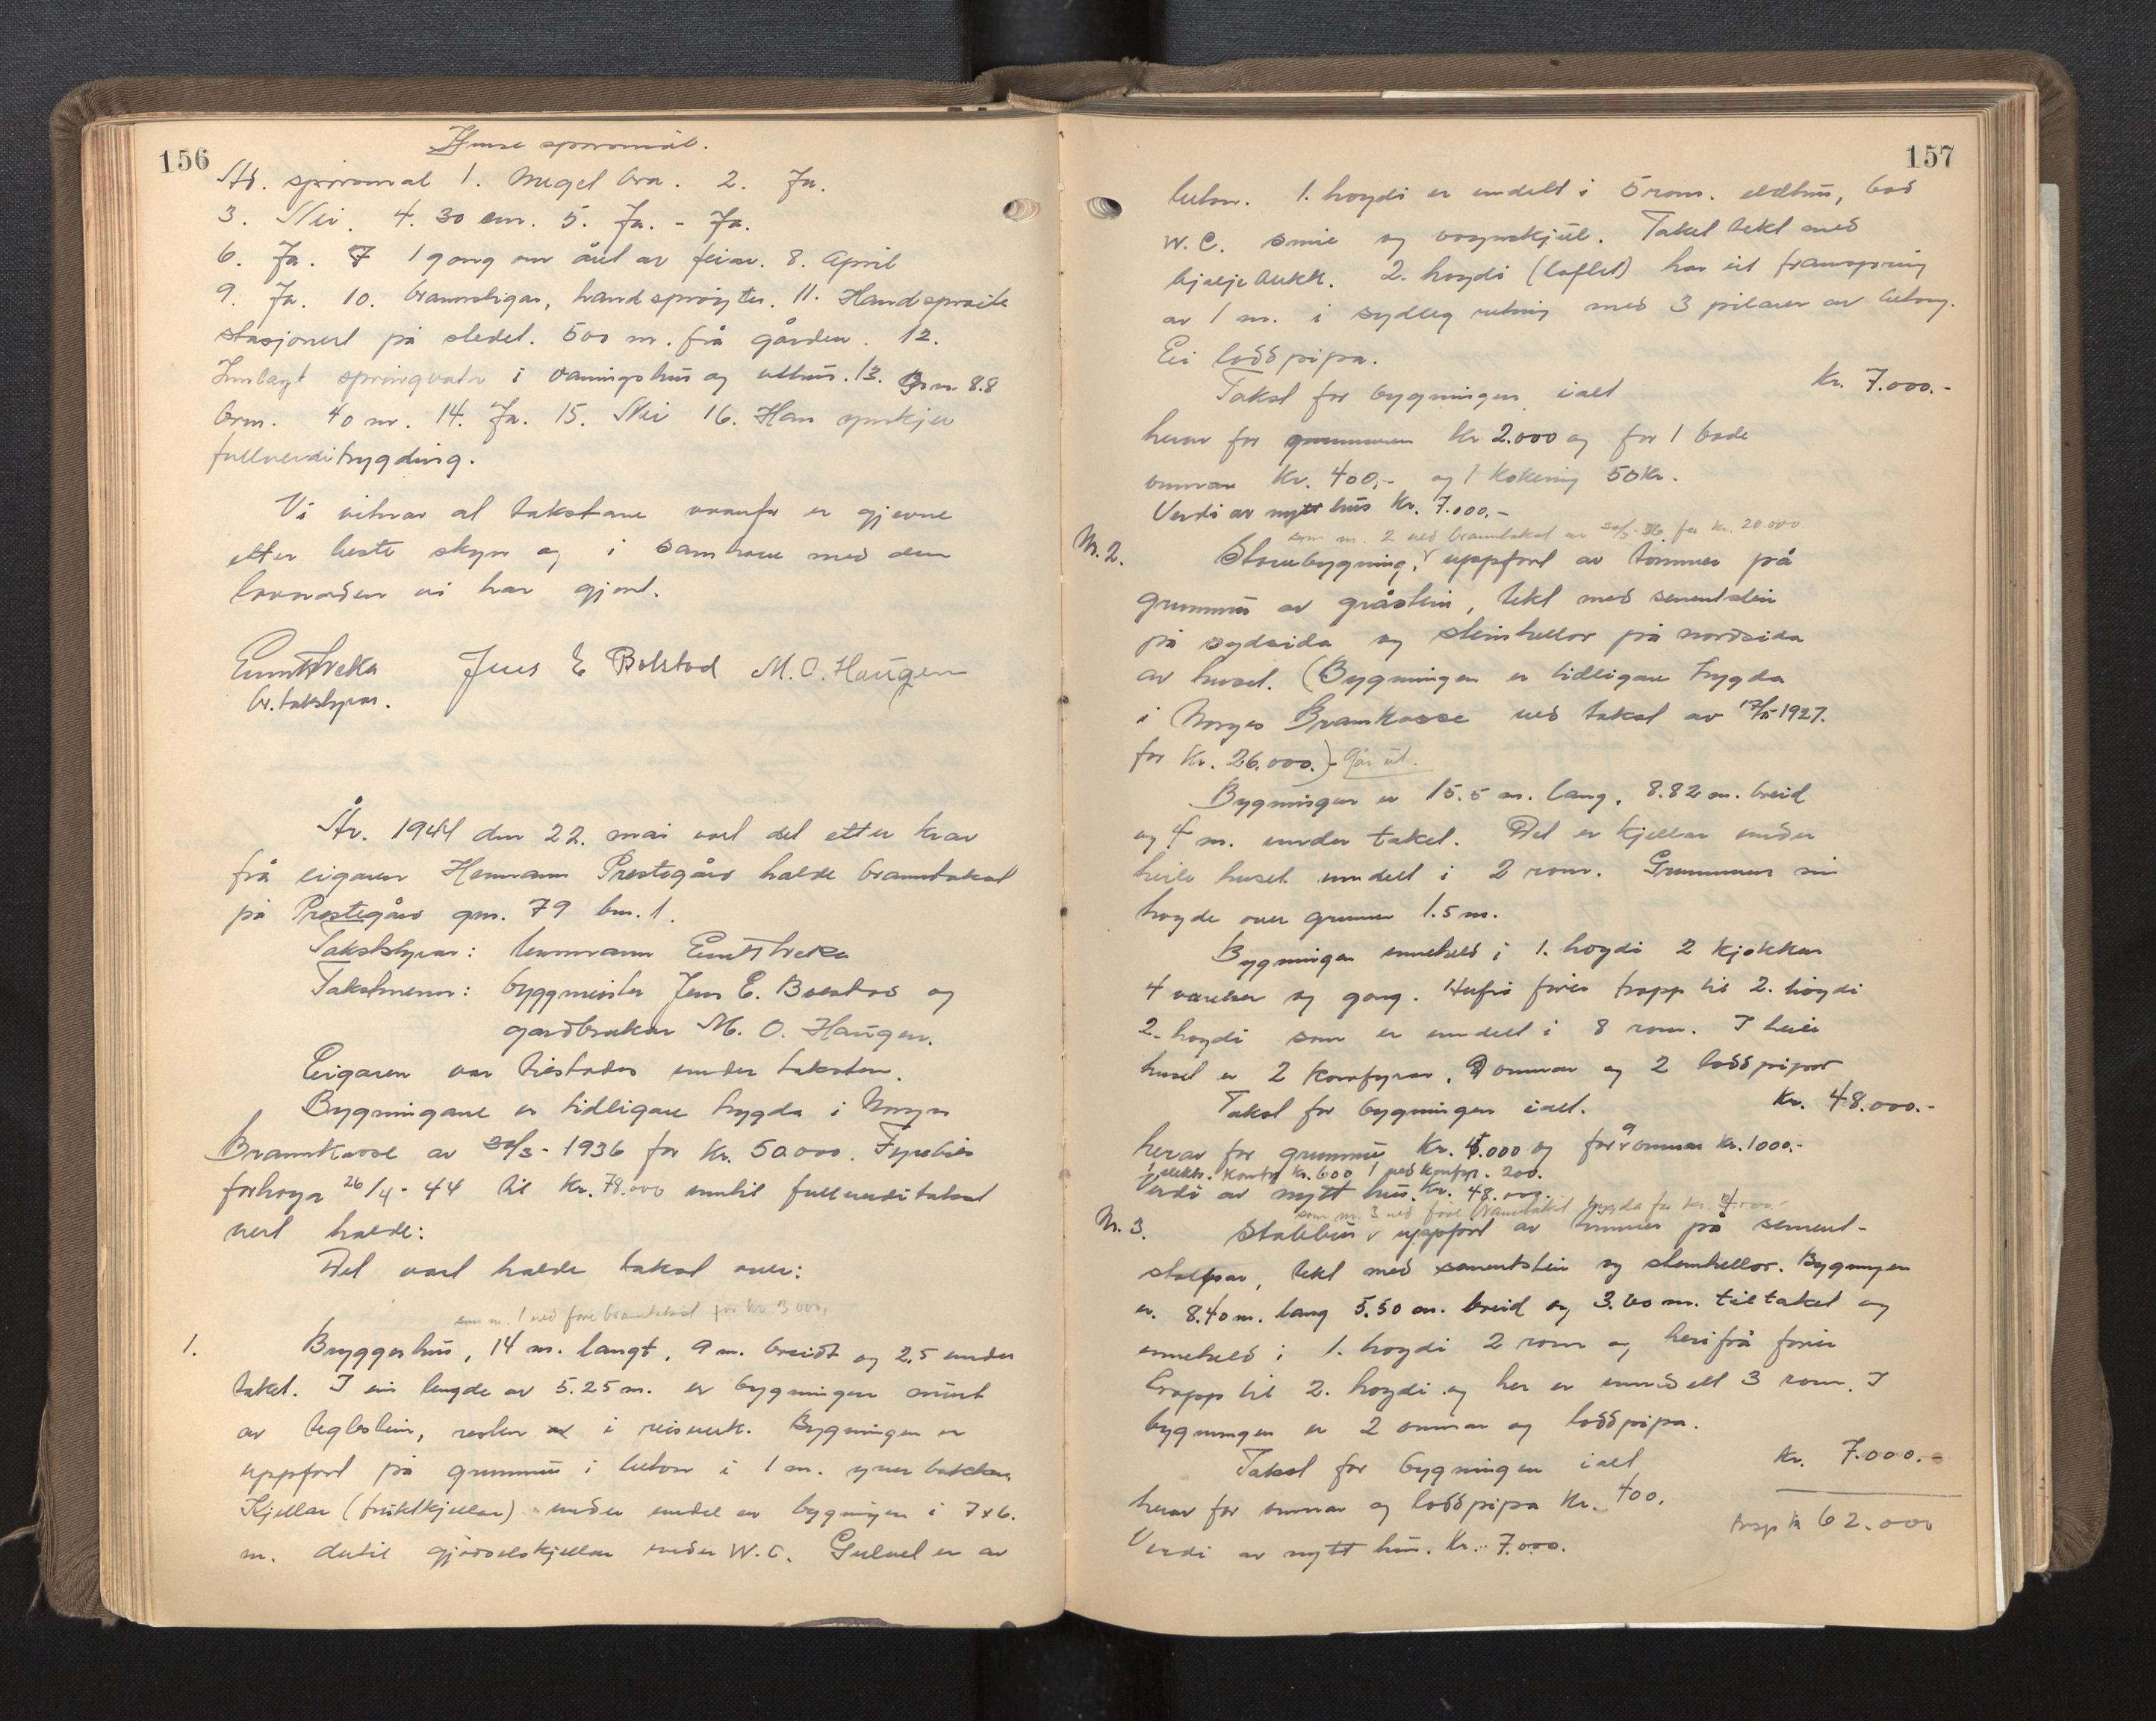 156
Ymse spörsmål.
Ad. spörsmål 1. Meget bra. 2. Ja.
3. Nei. 4. 30 cm. 5. Ja. - Ja.
6. Ja. 7 1 gong om året av feiar. 8. April
9. Ja. 10. brannstigar, handspröyter. 11. Handspröite
stasjonert på stedet. 500 m. frå gården. 12.
Innlagt springvatn i våningshus og uthus. 13. 8.8
brm. 40 m. 14. Ja. 15. Nei 16. Han ynskjer
fullverditrygding.
Vi vitnar at takstane ovanfor er gjevne
etter beste skyn og i samhøve med den
lovnaden vi har gjort.
Jens E Bolstad M. O. Haugen
br. takstyrar.
År. 1944 den 22. mai vart det etter krav
frå eigaren Hermann Prestegård halde branntakst
på Prestegård gnr. 79 bnr. 1.
Takststyrar: lensmann
Takstmenn: byggmeister Jens E. Bolstad og
gardbrukar M. O. Haugen.
Eigaren var tilstades under taksten.
Bygningane er tidligare trygda i Norges
Brannkasse av 20/5-1936 for kr. 50.000. Fyrebils
forhøga 26/4-44 til kr. 78.000 inntil fullverditakst
vert halde:
Det vart halde takst over:
som nr. 1 ved førre branntakst for kr. 3000.
1. Bryggerhus, 14 m. langt, 9 m. breidt og 2,5 under
taket. I ein lengde av 5.25 m. er bygningen murt
av teglstein, resten i reisverk. Bygningen er
uppført på grunnmur i betong i 1 m. yver bakken
Kjellar (fruktkjellar) under endel av bygningen i 7x6.
m. dertil gjødselskjellar under W.C. Gulvet er av
157
betong. 1. høgdi er inndelt i 5 rom. eldhus, bad
W.C. smie og vognskjul. Taket tekt med
2. høgdi (loftet) har eit framspring
av 1 m. i sydleg retning med 3 pilarer av betong.
Ei loddpipa.
Takst for bygningen ialt Kr. 7.000.-
herav for grunnmuren Kr 2.000 og for 1 bade
omnar Kr. 400,- og 1 50 kr.
Verdi av nytt hus Kr. 7.000.-
som nr. 2 ved branntakst av 20/5-36 for kr. 20.000.
Nr. 2. Storebygning, uppført av tømmer på
grunnmur av gråstein, tekt med sementstein
på sydsida og steinheller på nordsida
av huset. (Bygningen er tidligare trygda
i Norges Brannkasse ved takst av 17/5 1927.
for kr. 26.000.)- går ut.
Bygningen er 15.5 m. lang, 8.82 m. breid
og 4 m. under taket. Det er kjellar under
heile huset inndelt i 2 rom. Grunnmuren sin
høgde over grunnen 1.5 m.
Bygningen inneheld i 1. høgdi 2 kjøkken
4 værelser og gong. Herfrå fører trapp til 2. høgdi
2. høgdi som er inndelt i 8 rom. I heile
huset er 2 komfyrar, 9 omnar og 2 loddpipor
Takst for bygningen ialt. Kr. 48.000.-
herav for grunnmur Kr. 4.000 og for 9 omnar kr. 1000.-
1 elektr. komfyr kr. 600 1 ved komfyr. 200.
Verdi av nytt hus. Kr. 48.000.
som nr. 3 ved førre branntakst trygda for kr.
Nr. 3. Stabbur uppført av tømmer på sement-
stolpar, tekt med sementstein og steinheller. Bygningen
er. 8.40 m. lang 5.50 m. breid og 3.60 m. til taket og
inneheld i 1. høgdi 2 rom og herifrå fører
trapp til 2. høgdi og her er innredett 3 rom. I
bygningen er 2 omnar og loddpipa.
Takst for bygningen ialt Kr. 7.000.-
herav for omnar og loddpipa Kr. 400.
62.000
Verdi av nytt hus. Kr. 7.000.